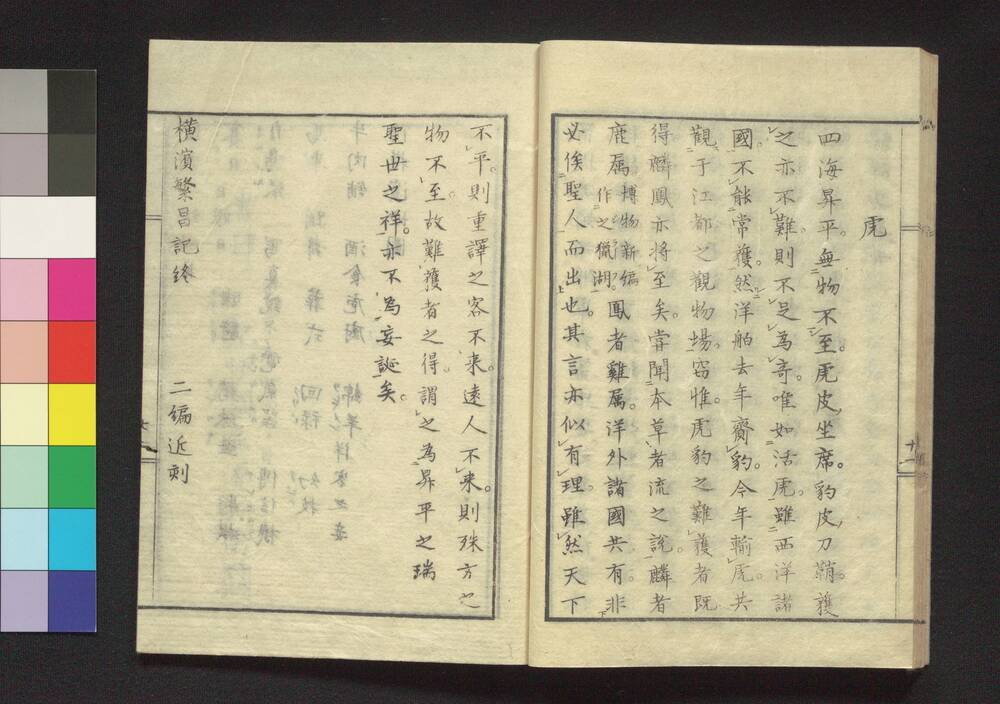 虎
四海昇平。無物不至。虎皮坐席。豹皮刀鞘。獲
之亦不難。則不足為奇。唯如活虎。雖西洋諸
國。不能常獲。然洋舶去年齎豹。今年輸虎。共
觀于江都之觀物場。窃惟虎豹之難獲者既
得。麟鳳亦将至矣。甞聞本草者流之說。麟者
鹿属博物新編作之獵湖。鳳者雞属。洋外諸國共有。非
必俟聖人而出也。其言亦似有理。雖然天下
不平。則重譯之客不来。遠人不来。則殊方之
物不至。故難獲者之得。謂之為昇平之瑞
聖世之祥。亦不為妄誕矣。
横濱繁昌記終
二編近刻
十一